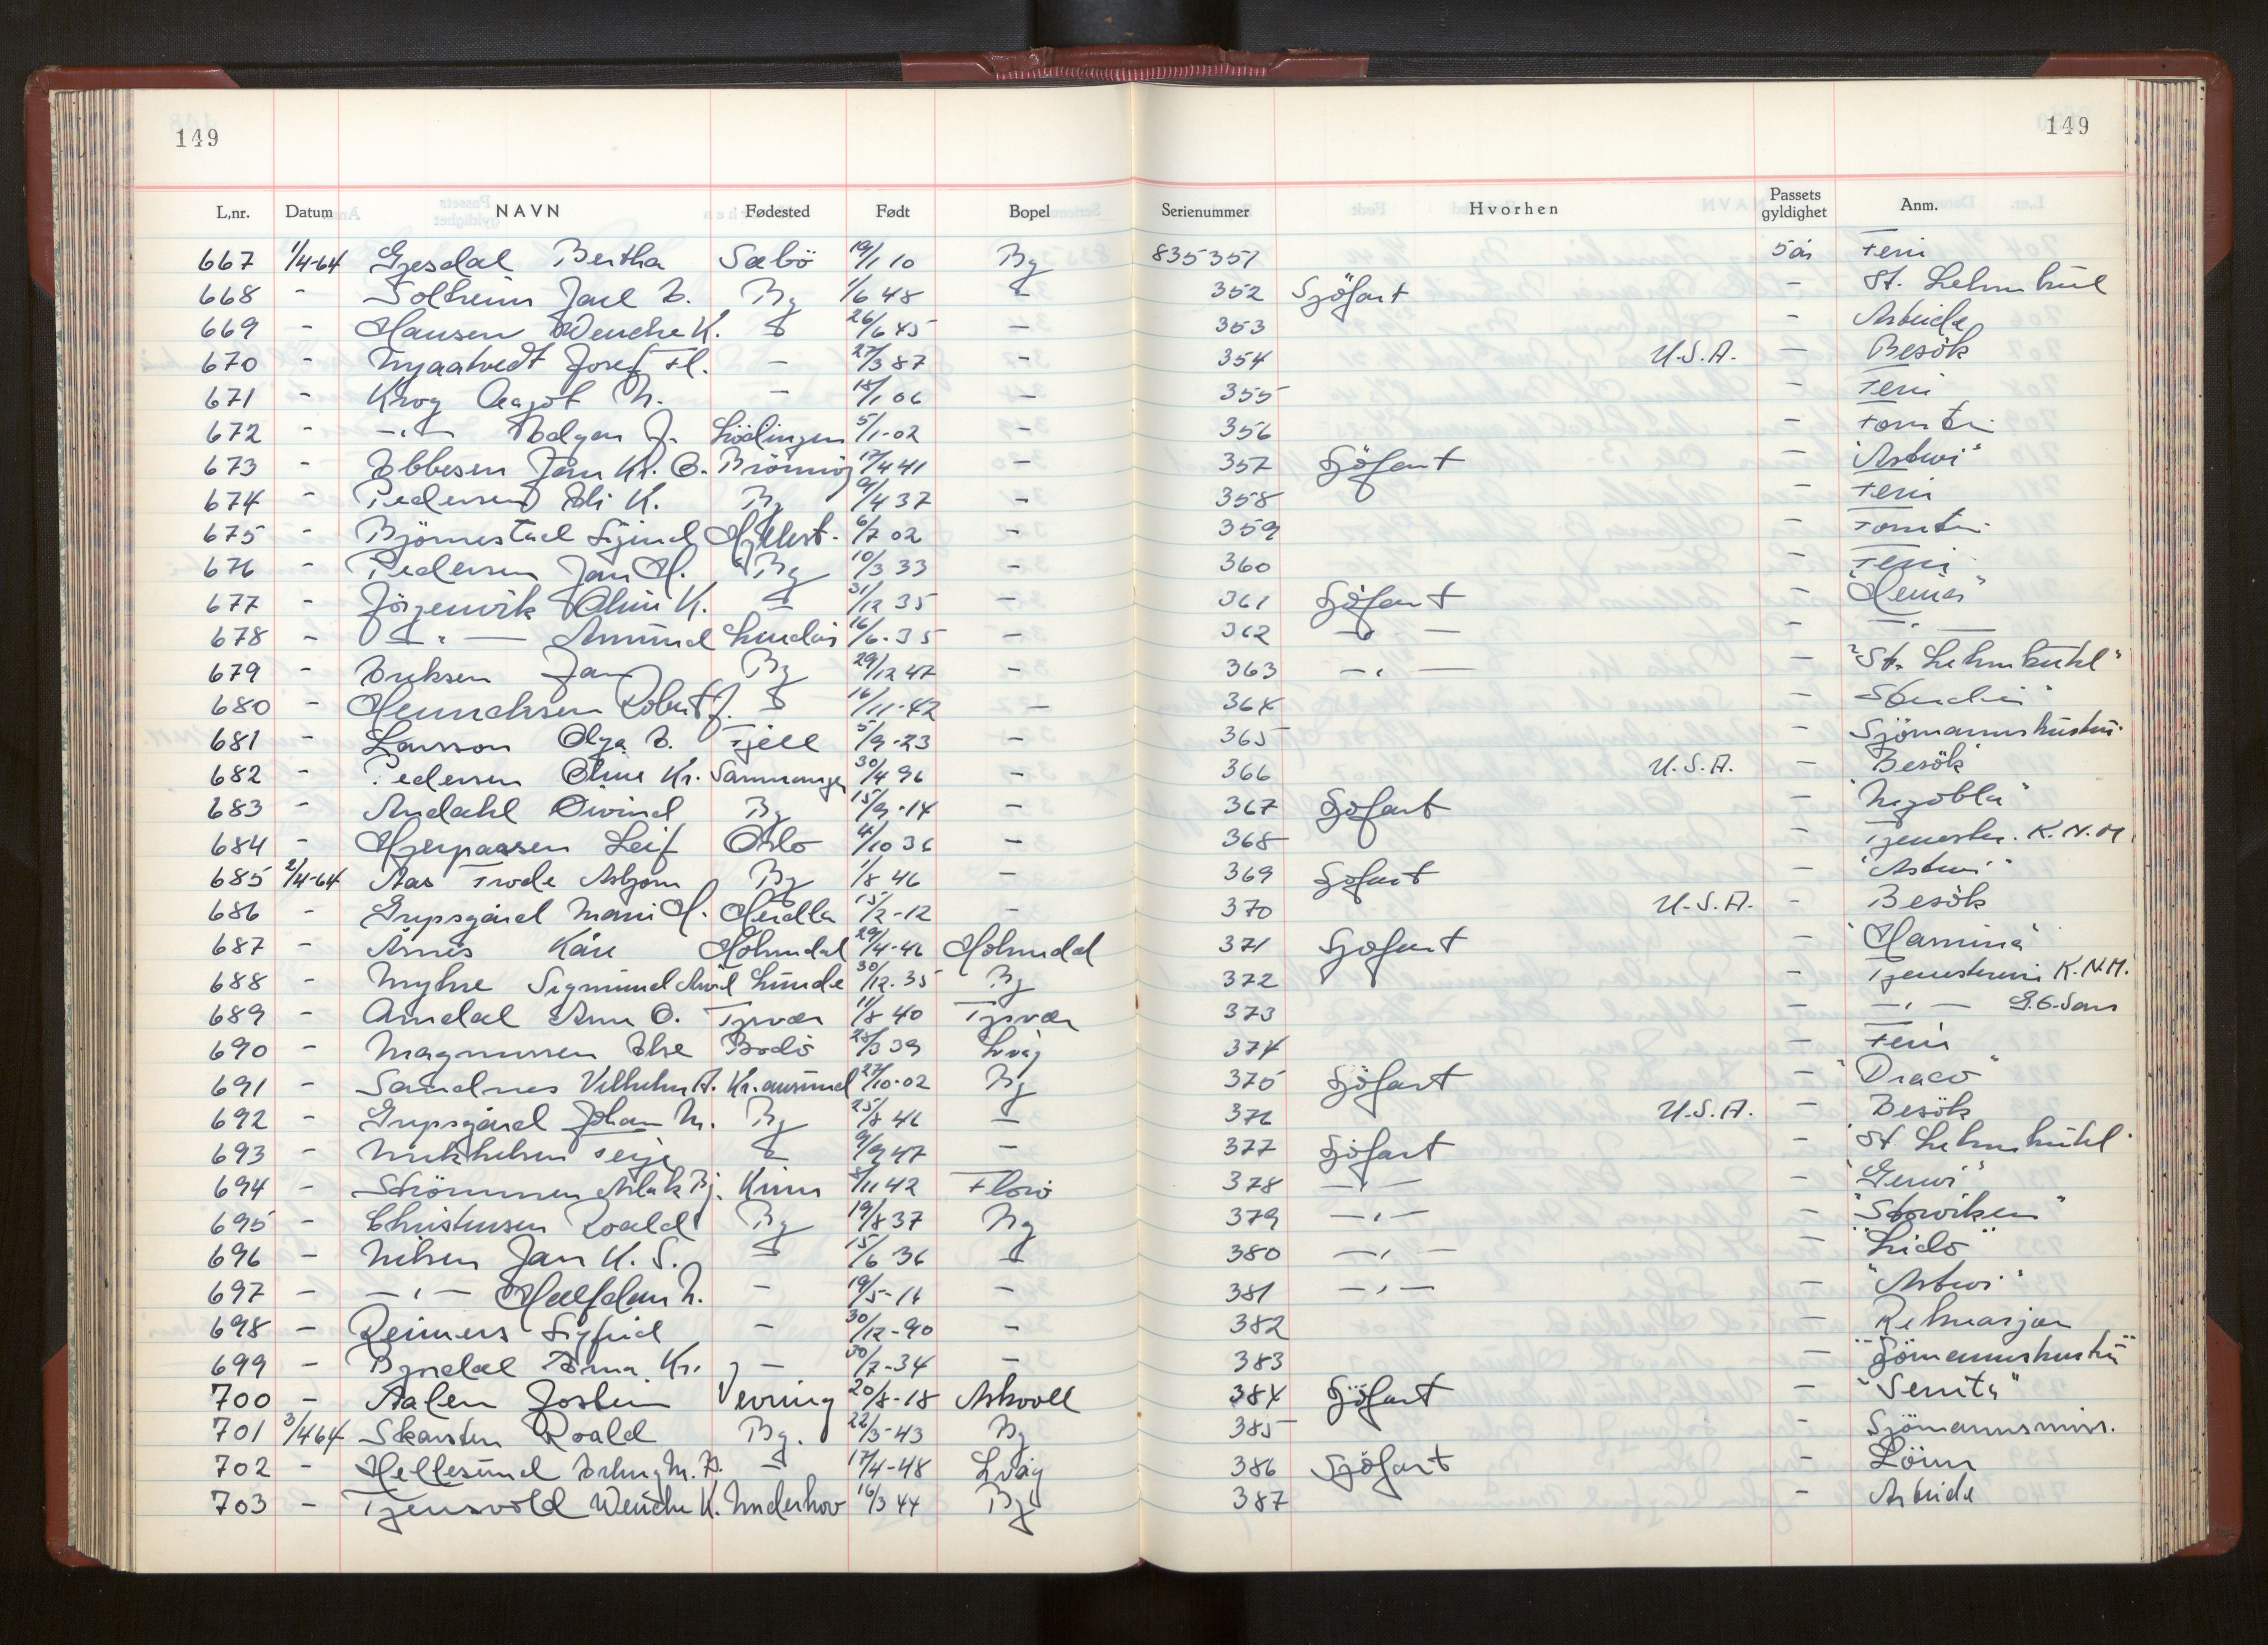 149 149
L,nr. Datum NAVN Fødested Født Bopel Serienummer Hvorhen Passets gyldighet Anm.
667 1/4-64 Gjesdal Bertha Sæbö 19/1 10 Bg 835351 5 år Feri
668 - Solheim Jarl E. Bg 1/6 48 - 352 Sjöfart - St. Lehmkul
669 - Hansen Wenche K. - 26/6 45 - 353 - Arbeide
670 - Nygaatvedt Josef Fl. - 27/3 87 - 354 U.S.A. - Besök
671 - Krog Aagot N. - 18/1 06 - 355 - Feri
672 - -"- Holger J. Lödingen 5/1-02 - 356 - Forretn
673 - Ebbesen Jan Kr. B. Brönnöy 17/4 41 - 357 Sjöfart - "Astwi"
674 - Pedersen Eli K. Bg 9/4 37 - 358 - Feri
675 - Björnestad Sigurd 6/7 02 - 359 - Forretn.
676 - Pedersen Jan H. Bg 10/3 33 - 360 - Feri
677 - Jörgenvik K. - 31/12 35 - 361 Sjöfart -
678 - -"- Amund Lindås 16/6-35 - 362 -"- - -"-
679 - Eriksen Jan Bg 29/12 47 - 363 -"- - "St. Lehmkuhl"
680 - Henrichsen Robert J. - 16/11-42 - 364 -
681 - Larsson Olga E. Fjell 5/9-23 - 365 - Sjömannshustru.
682 - Pedersen Oline Kr. Samnanger 30/4 96 - 366 U.S.A. - Besök
683 - Andahl Öivind Bg 15/9-14 - 367 Sjöfart -
684 - Hjerpaasen Leif Oslo 4/10 36 - 368 - Tjenester. K.N.M.
685 2/4-64 Aas Frode Asbjörn Bg 1/8 46 - 369 Sjöfart - "Astwi"
686 - Gripsgård Marie H. Herdla 15/2-12 - 370 U.S.A. - Besök
687 - Årnes Kåre Holmedal 29/4-46 Holmedal 371 Sjöfart - "Hamina"
688 - Myhre Sigmund Arvid Lunde 30/12.35 Bg 372 - Tjenestereise K.N.M.
689 - Amdal Arne O. Tysvær 11/8 40 Tysvær 373 - -"- G.O. Sars
690 - Magnussen Else Bodö 28/3 39 Lvåg 374 - Feri
691 - Sandnes Vilhelm A. Kr.ansund 27/10-02 Bg 375 Sjöfart - "Draco"
692 - Gripsgård Johan M. Bg 25/8 46 - 376 U.S.A. - Besök
693 - Mikkelsen Terje - 9/9 47 - 377 Sjöfart - "St Lehmkuhl"
694 - Strömmen Aslak Bj. Kinn 8/11 42 Florö 378 -"- - "Gerwi"
695 - Christensen Roald Bg 19/8 37 Bg 379 -"- - "Storviken"
696 - Nilsen Jan K. S. - 15/6 36 - 380 -"- - "Lido"
697 - -"- Halfdan N. - 19/5-16 - 381 -"- - "Astwi"
698 - Reimers Sigfrid - 30/12-90 - 382 - Rekreasjon
699 - Byrdal Erna Kr. - 30/7-34 - 383 - "Sjömannshustru"
700 - Aalen Jostein Vevring 20/8-18 Askvoll 384 Sjöfart - "Senita"
701 3/4 64 Skarsten Roald Bg. 22/3-43 Bg 385 - Sjömannsmiss.
702 - Hellesund Erling M. A. - 17/4-48 Lvåg 386 Sjöfart - Lönn
703 - Tjensvold Wenche K. Underhov 16/3 44 Bg 387 - Arbeide